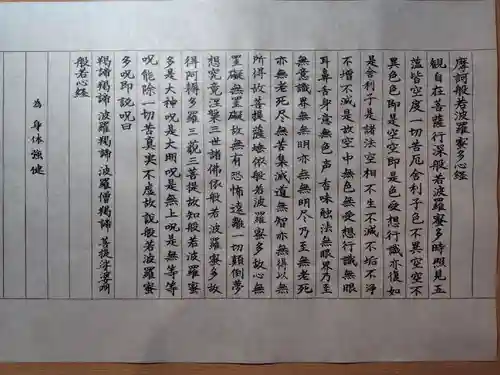 摩訶般若波羅蜜多心経
観自在菩薩行深般若波羅蜜多時照見五
蘊皆空度一切苦厄舎利子色不異空空不
異色色即是空空即是色受想行識亦復如
是舎利子是諸法空相不生不滅不垢不浄
不増不減是故空中無色無受想行識無眼
耳鼻舌身意無色声香味触法無眼界乃至
無意識界無無明亦無無明尽乃至無老死
亦無老死尽無苦集滅道無智亦無得以無
所得故菩提薩埵依般若波羅蜜多故心無
罣礙無罣礙故無有恐怖遠離一切顛倒夢
想究竟涅槃三世諸佛依般若波羅蜜多故
得阿耨多羅三藐三菩提故知般若波羅蜜
多是大神呪是大明呪是無上呪是無等等
呪能除一切苦真実不虚故説般若波羅蜜
多呪即説呪曰
羯諦羯諦波羅羯諦波羅僧羯諦菩提薩婆訶
般若心経
為身体強健